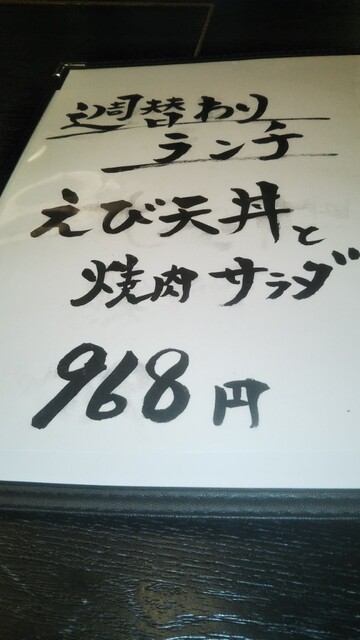 週替わり
ランチ
えび天丼と
焼肉サラダ
968円